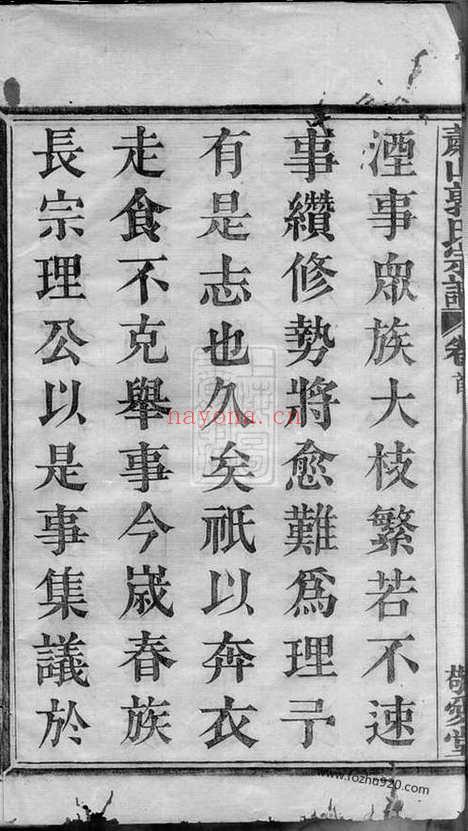 蕭山郭氏宗譜 卷首 敬愛堂
湮事衆族大枝繁若不速
事纘修勢將愈難爲理予
有是志也久矣祇以奔衣
走食不克舉事今歲春族
長宗理公以是事集議於
nayona.cn
www.fozhu920.com